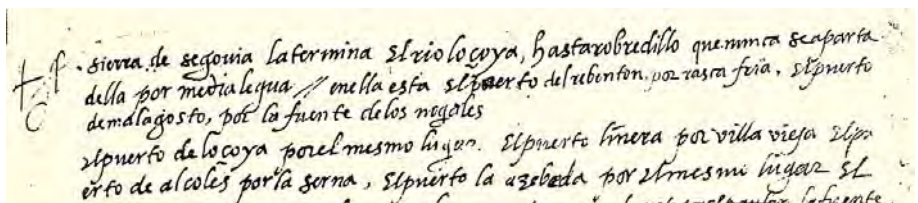 . sierra de segouia latermina El rio loçoya, hastarobredillo que nunca seaparta
della por media legua // enella esta Elpuerto delrebenton, por rasca fria, Elpuerto
demalagosto, por la fuente delos nogales
Elpuerto de loçoya porel mesmo lugar. Elpuerto linera por villa vieja Elpu
erto de alcoles por la serna, Elpuerto la azebeda por el mesmo lugar El
lafuente